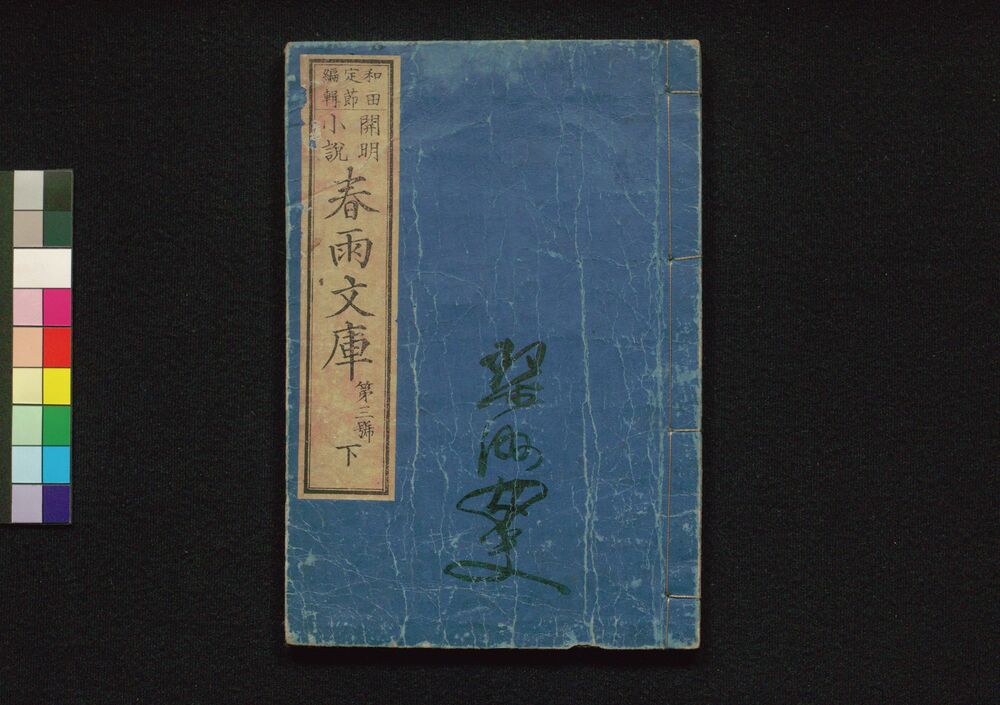 和田
定節
編輯
開明
小説
春雨文庫
第三號
下